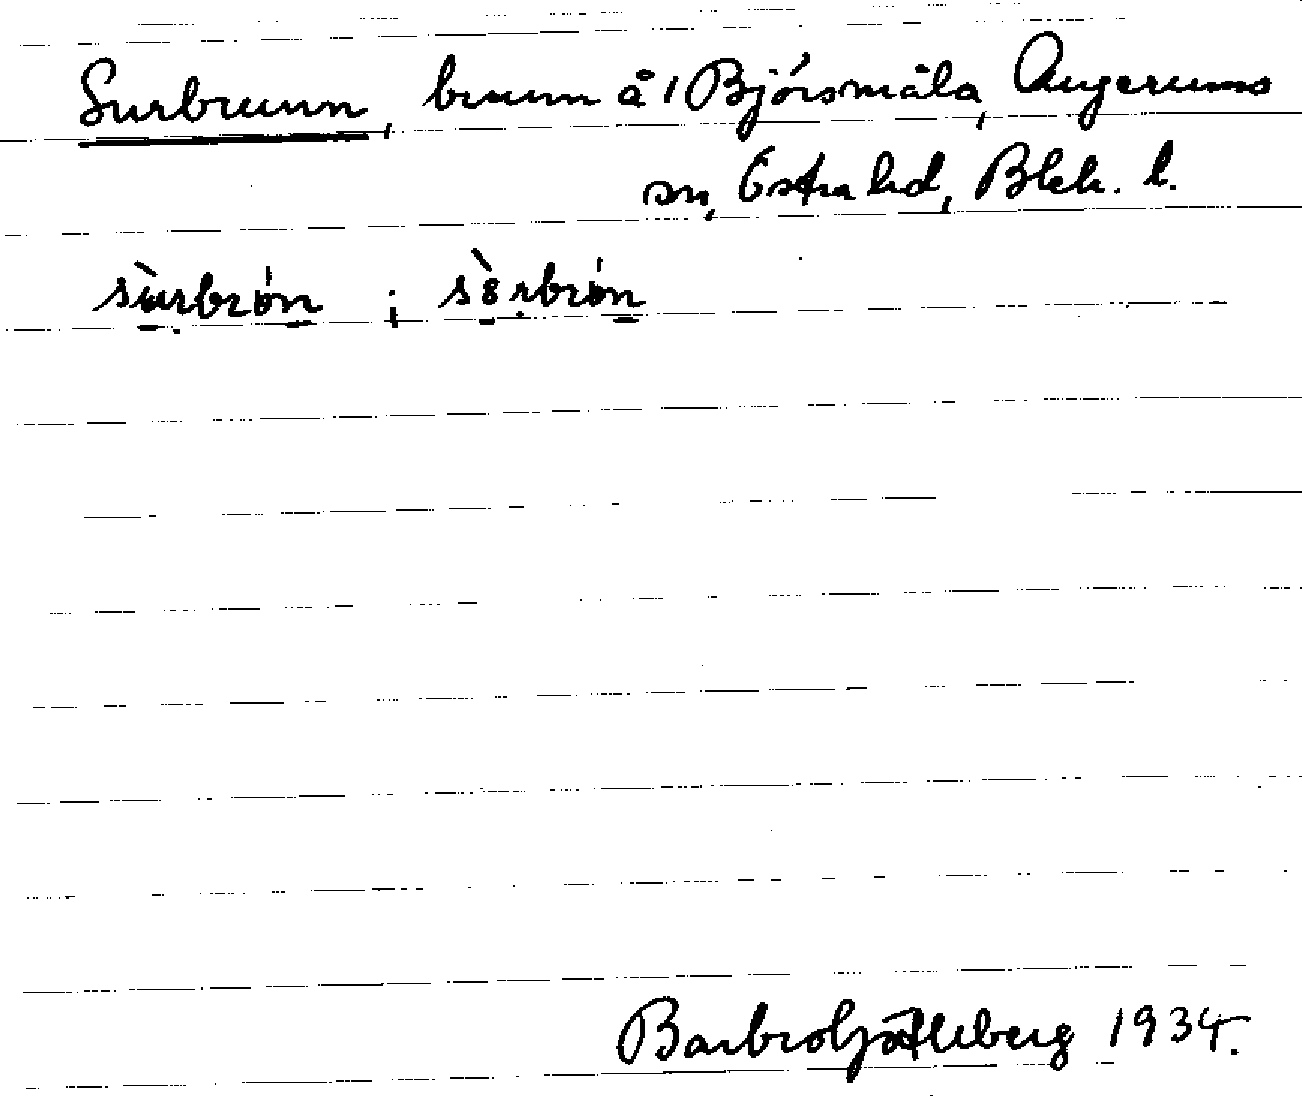 Surbrunn, brunn å 1 Björsmåla, Augerums
sn, Östra hd, Blek. l.
sùrbrón ; sùrbrón
Barbro Götleberg 1934.